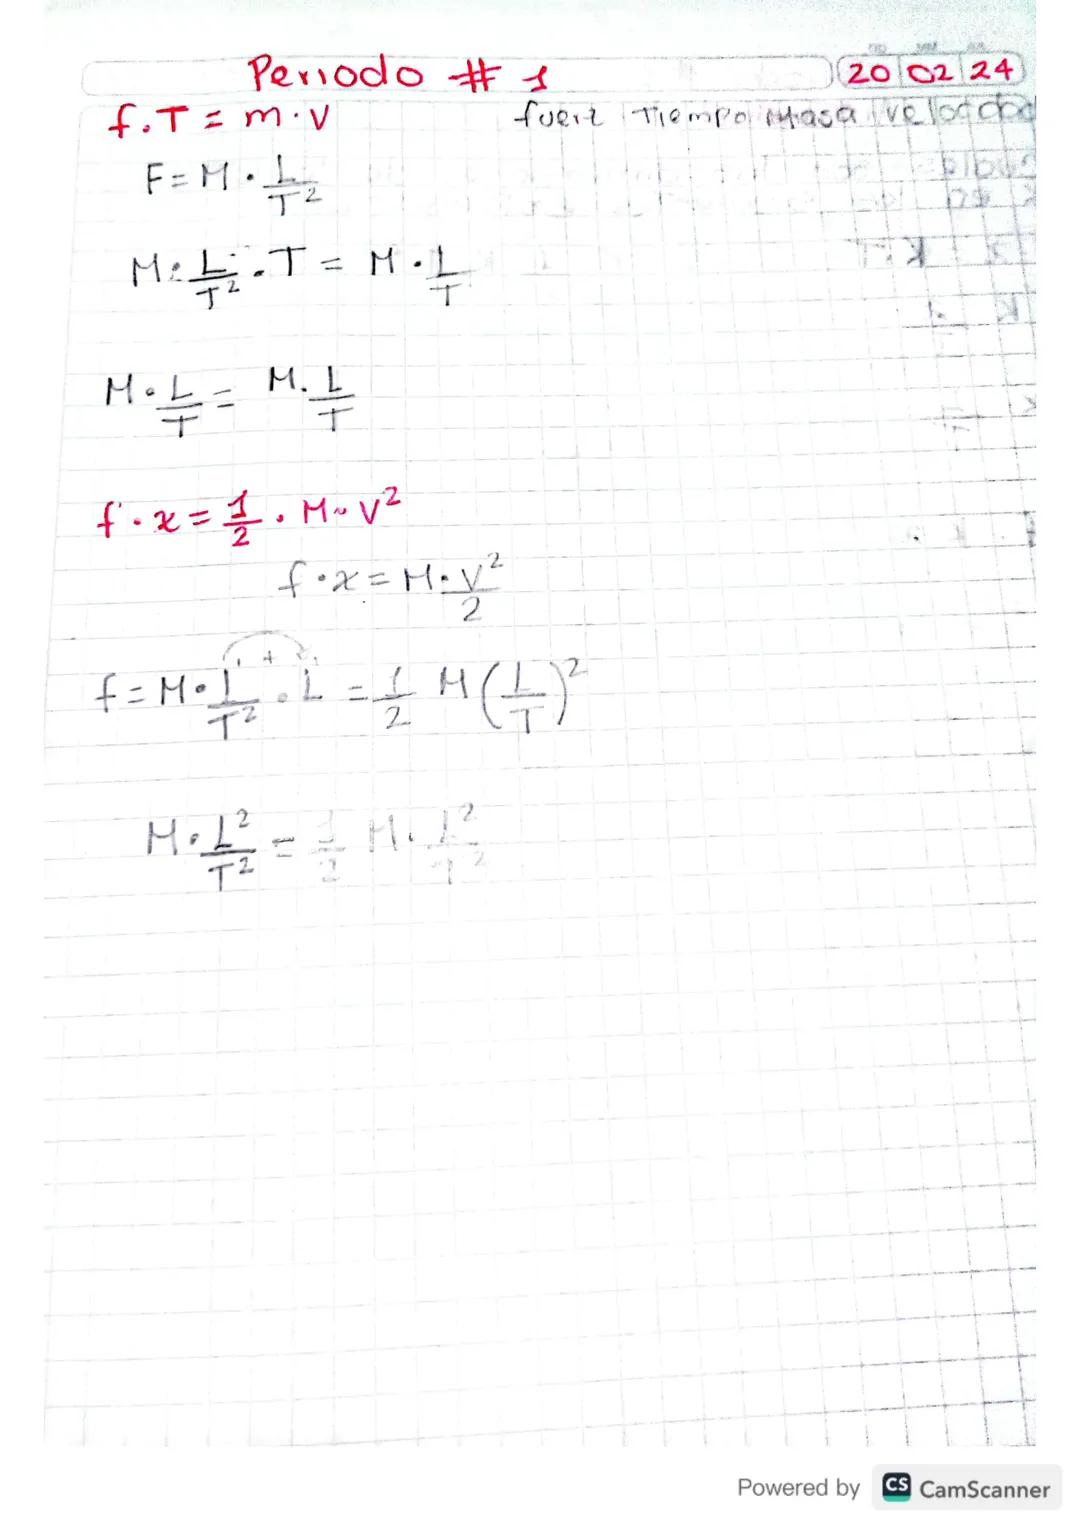 Periodo # 1
20 02 24
f.T = m.V
Tiempo Masa velocidad
F = M · L/T²
M · L/T² . T = M · L/T
M · L/T = M . L/T
f · x = 1/2 . M · V²
f · x = M · V²/2
+
f = M · L/T² . L = 1/2 M (L/T)²
M · L²/T² = 1/2 M . L²/T²
Powered by CS CamScanner